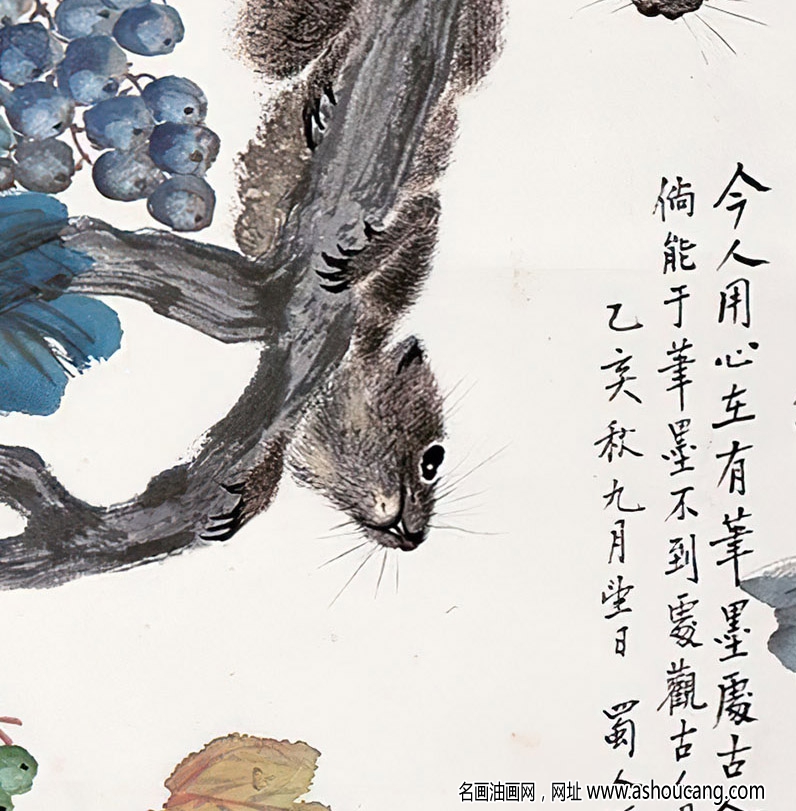 今人用心在有筆墨處古
倘能于筆墨不到處觀古人用
乙亥秋九月望日 蜀人
名画油画网，网址 www.ashoucang.com